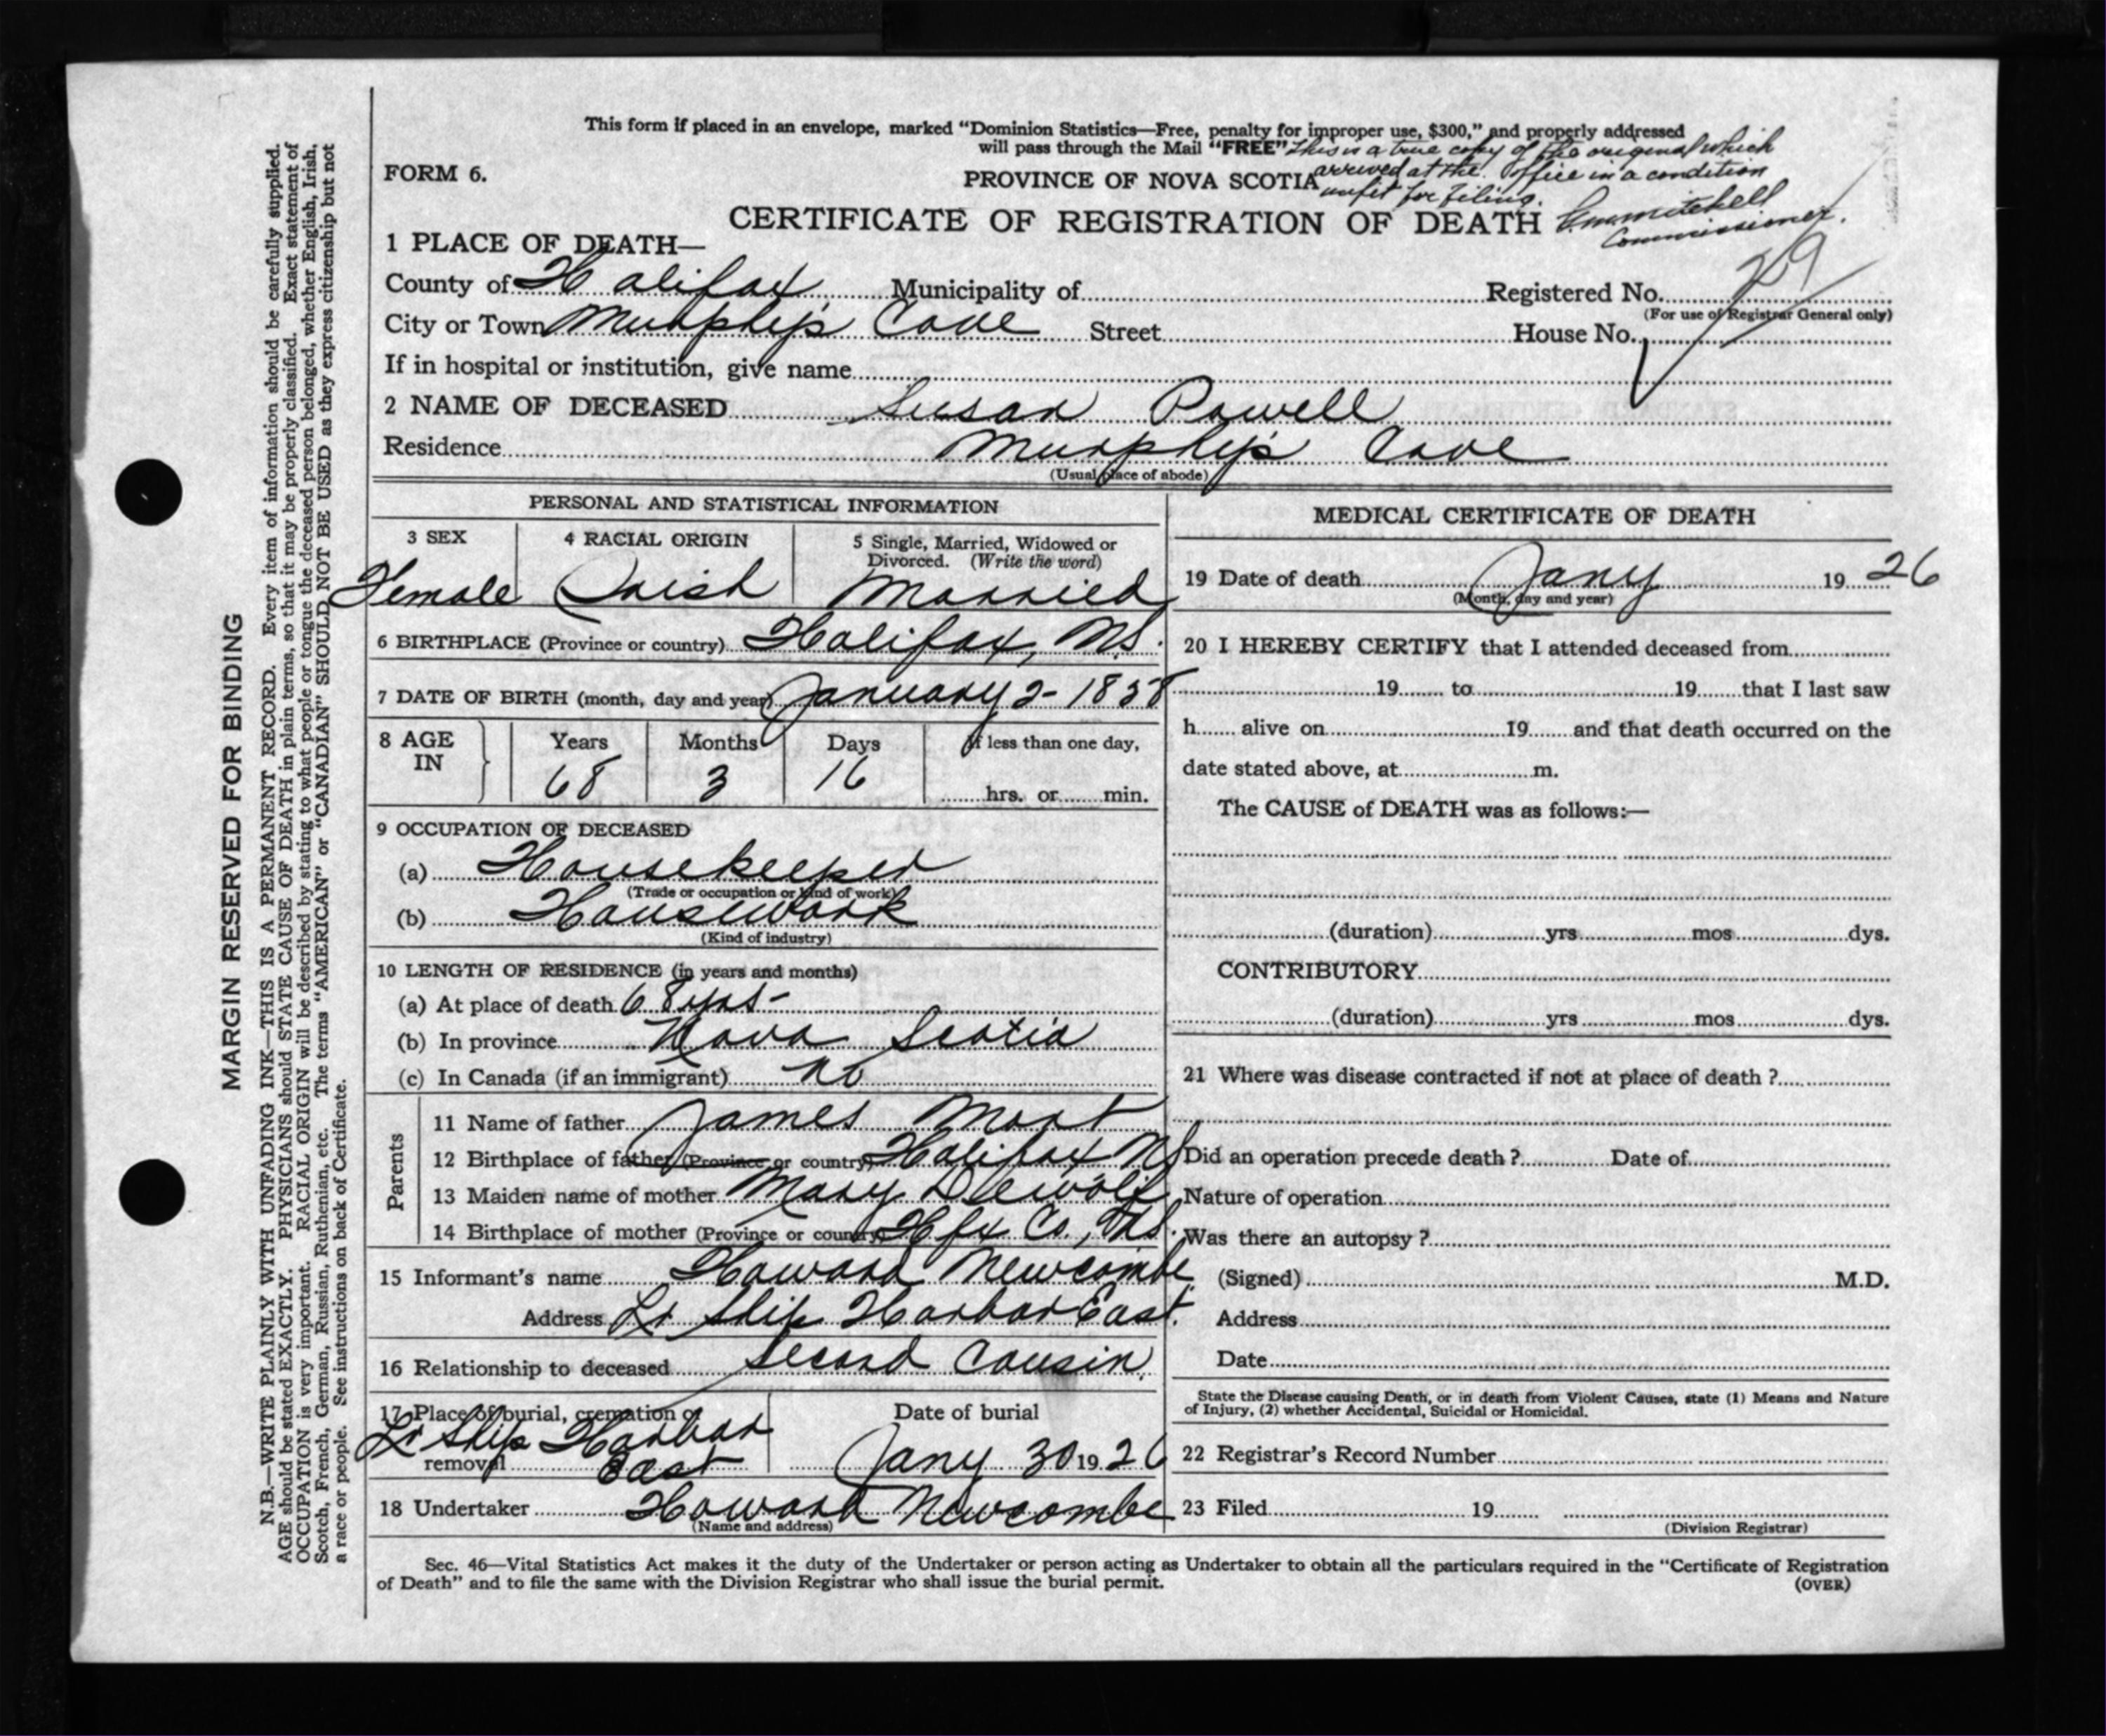 This form if placed in an envelope, marked “Dominion Statistics—Free, penalty for improper use, $300,” and properly addressed
will pass through the Mail “FREE” This is a true copy of the original which
arrived at the office in a condition
unfit for filing.
Mitchell
Commissioner.
FORM 6.
PROVINCE OF NOVA SCOTIA
CERTIFICATE OF REGISTRATION OF DEATH
1 PLACE OF DEATH—
County of Halifax Municipality of Registered No. 29
(For use of Registrar General only)
City or Town Murphy's Cove Street House No.
If in hospital or institution, give name
2 NAME OF DECEASED Susan Powell
Residence Murphy's Cove
(Usual place of abode)
PERSONAL AND STATISTICAL INFORMATION
3 SEX 4 RACIAL ORIGIN 5 Single, Married, Widowed or
Divorced. (Write the word)
Female Irish Married
6 BIRTHPLACE (Province or country) Halifax, N.S.
7 DATE OF BIRTH (month, day and year) January 2-1858
8 AGE IN Years Months Days If less than one day,
68 3 16 hrs. or min.
9 OCCUPATION OF DECEASED
(a) Housekeeper
(Trade or occupation or kind of work)
(b) Housework
(Kind of industry)
10 LENGTH OF RESIDENCE (in years and months)
(a) At place of death 68 yrs-
(b) In province Nova Scotia
(c) In Canada (if an immigrant) no
Parents
11 Name of father James Mont
12 Birthplace of father (Province or country) Halifax NS
13 Maiden name of mother Mary Dewolf
14 Birthplace of mother (Province or country) Hfx Co., N.S.
15 Informant's name Howard Newcombe
Address Lr Ship Harbor East.
16 Relationship to deceased Second Cousin.
17 Place of burial, cremation or
removal Lr Ship Harbor
East
Date of burial
Jany 30 1926
18 Undertaker Howard Newcombe
(Name and address)
MEDICAL CERTIFICATE OF DEATH
19 Date of death Jany 19 26
(Month, day and year)
20 I HEREBY CERTIFY that I attended deceased from
19 to 19 that I last saw
h alive on 19 and that death occurred on the
date stated above, at m.
The CAUSE of DEATH was as follows:—
(duration) yrs mos dys.
CONTRIBUTORY
(duration) yrs mos dys.
21 Where was disease contracted if not at place of death ?
Did an operation precede death ? Date of
Nature of operation
Was there an autopsy ?
(Signed) M.D.
Address
Date
State the Disease causing Death, or in death from Violent Causes, state (1) Means and Nature
of Injury, (2) whether Accidental, Suicidal or Homicidal.
22 Registrar's Record Number
23 Filed 19
(Division Registrar)
Sec. 46—Vital Statistics Act makes it the duty of the Undertaker or person acting as Undertaker to obtain all the particulars required in the “Certificate of Registration
of Death” and to file the same with the Division Registrar who shall issue the burial permit.
(OVER)
MARGIN RESERVED FOR BINDING
N.B.—WRITE PLAINLY WITH UNFADING INK—THIS IS A PERMANENT RECORD. Every item of information should be carefully supplied.
AGE should be stated EXACTLY. PHYSICIANS should STATE CAUSE OF DEATH in plain terms, so that it may be properly classified. Exact statement of
OCCUPATION is very important. RACIAL ORIGIN will be described by stating to what people or tongue the deceased person belonged, whether English, Irish,
Scotch, French, German, Russian, Ruthenian, etc. The terms “AMERICAN” or “CANADIAN” SHOULD NOT BE USED as they express citizenship but not
a race or people. See instructions on back of Certificate.